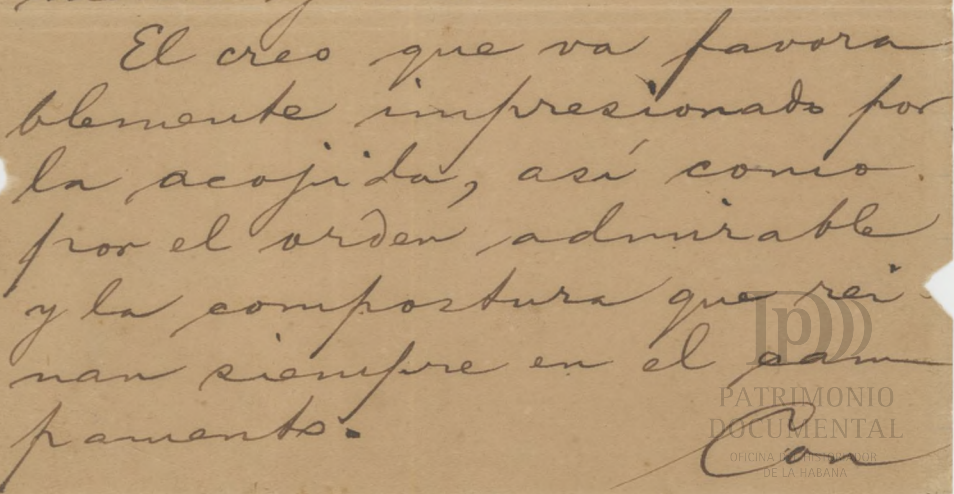 El creo que va favora
blemente impresionado por
la acojida, así como
por el orden admirable
y la compostura que rei-
nan siempre en el cam
pamento.
Con
PATRIMONIO
DOCUMENTAL
OFICINA DEL HISTORIADOR
DE LA HABANA